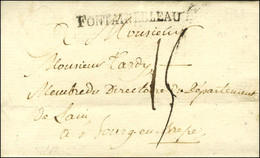 FONTAINEBLEAU
Monsieur
Monsieur Tardy
15
Membre du Directoire du Département
de Lain
a Bourg en Bresse